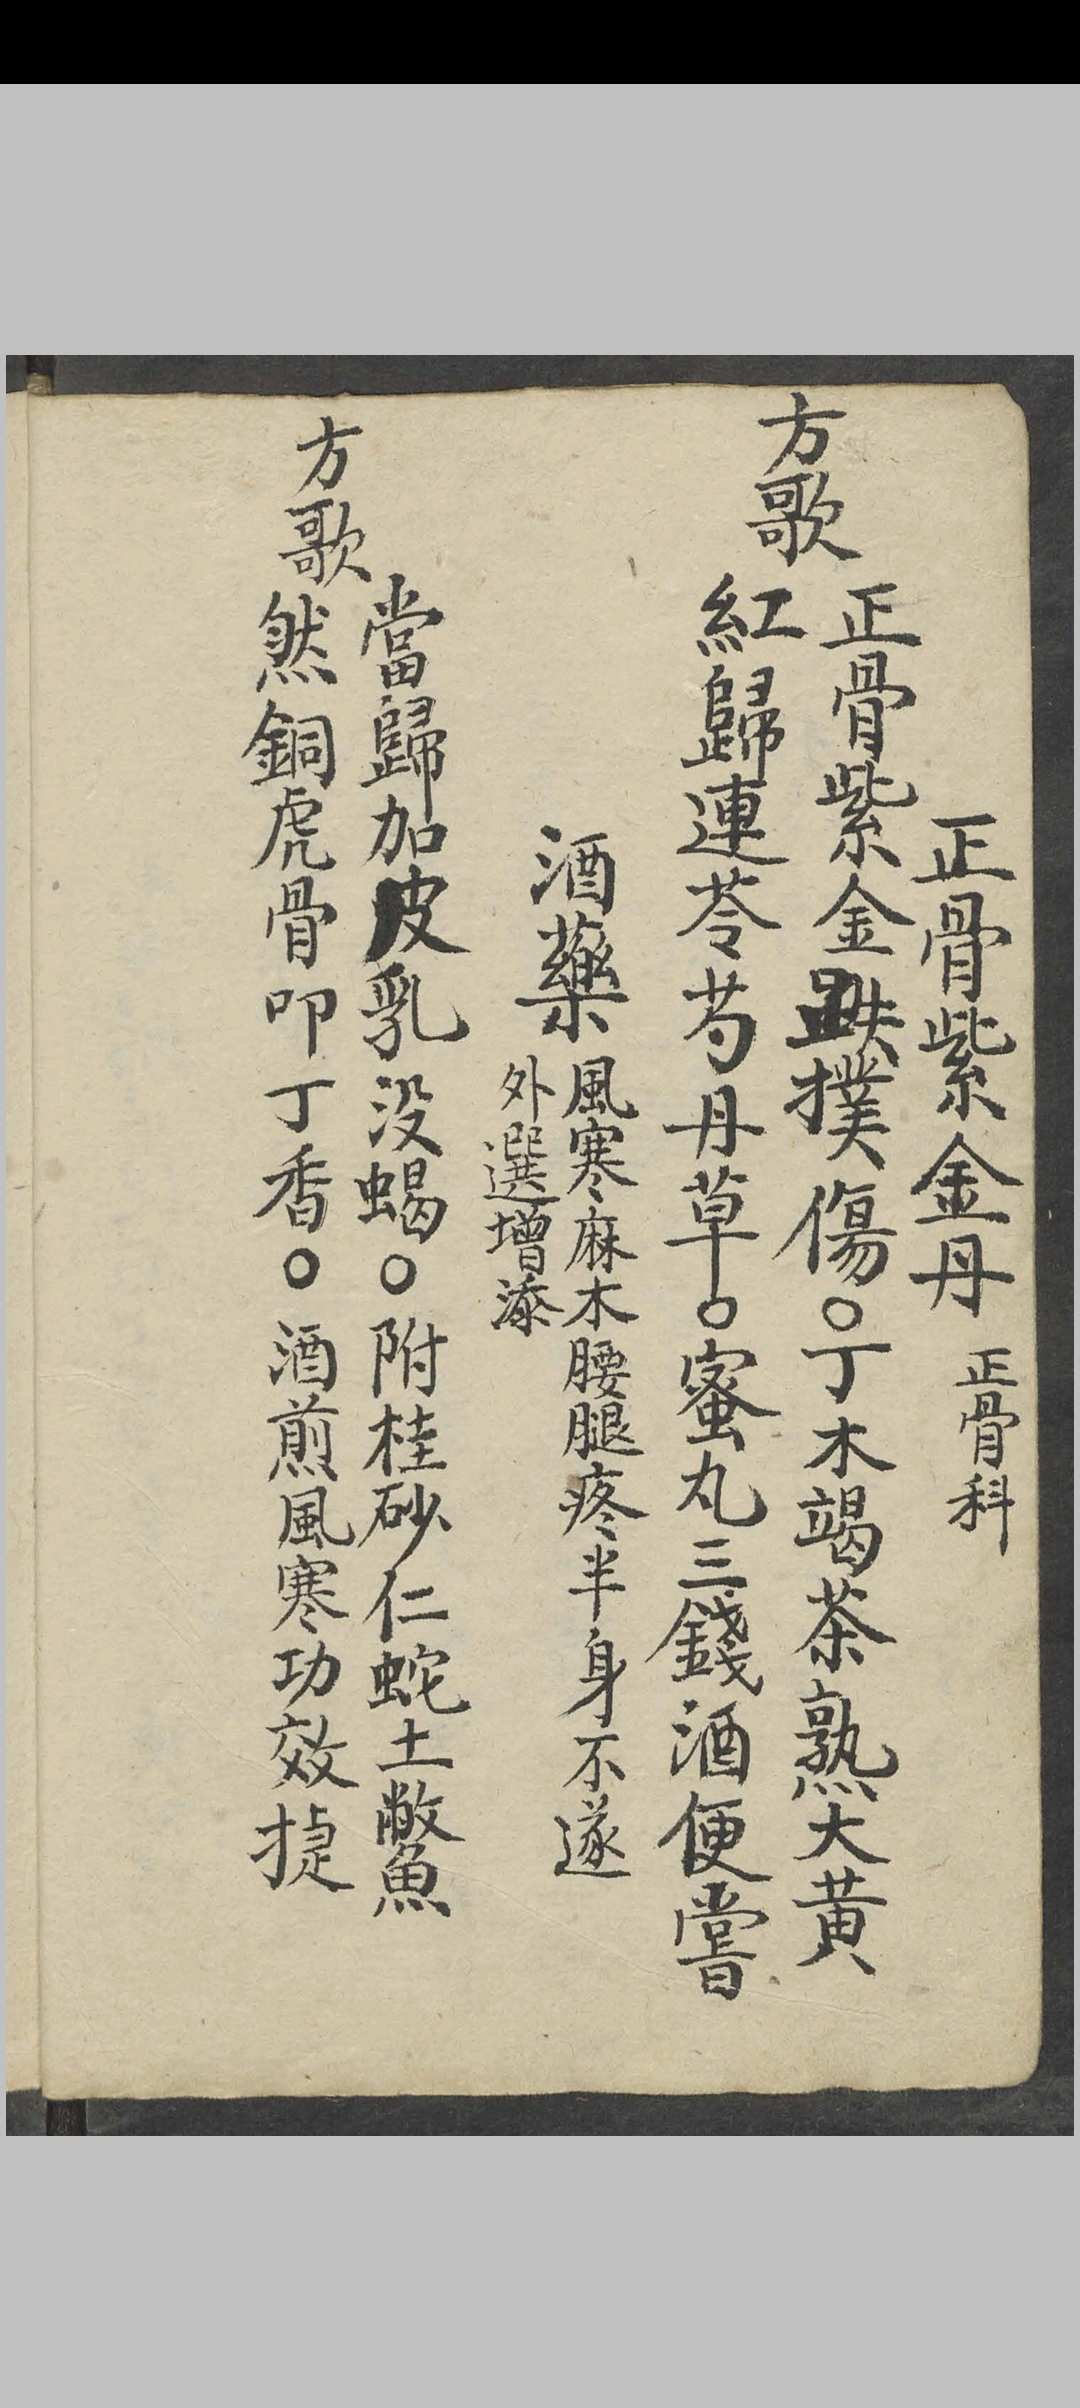 正骨紫金丹 正骨科
方歌
正骨紫金跌撲傷○丁木竭茶熟大黄
紅歸連苓芍丹草○蜜丸三錢酒便嘗
酒藥
風寒麻木腰腿疼半身不遂
外選增添
方歌
當歸加皮乳没蝎○附桂砂仁蛇土鱉
然銅虎骨叩丁香○酒煎風寒功效捷